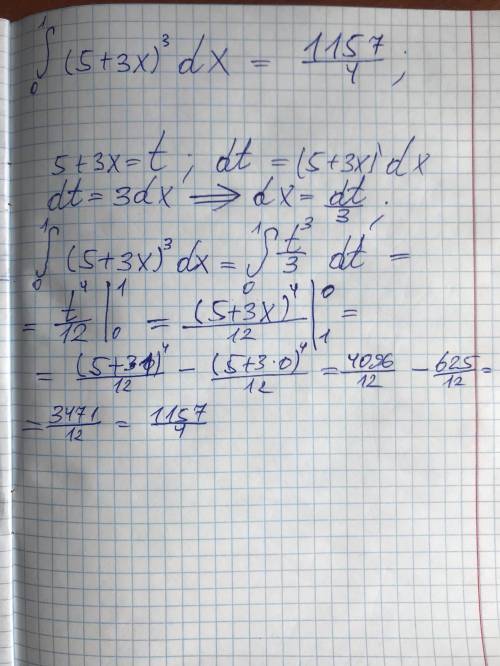 ∫₀¹ (5+3x)³ dx = 1157/4 ;
5+3x=t ; dt =(5+3x)' dx
dt = 3dx ⟹ dx = dt/3 ;
∫₀¹ (5+3x)³ dx = ∫₀¹ t³/3 dt =
= t⁴/12 |₀¹ = (5+3x)⁴/12 |₁⁰ =
= (5+3·1)⁴/12 − (5+3·0)⁴/12 = 4096/12 − 625/12 =
= 3471/12 = 1157/4